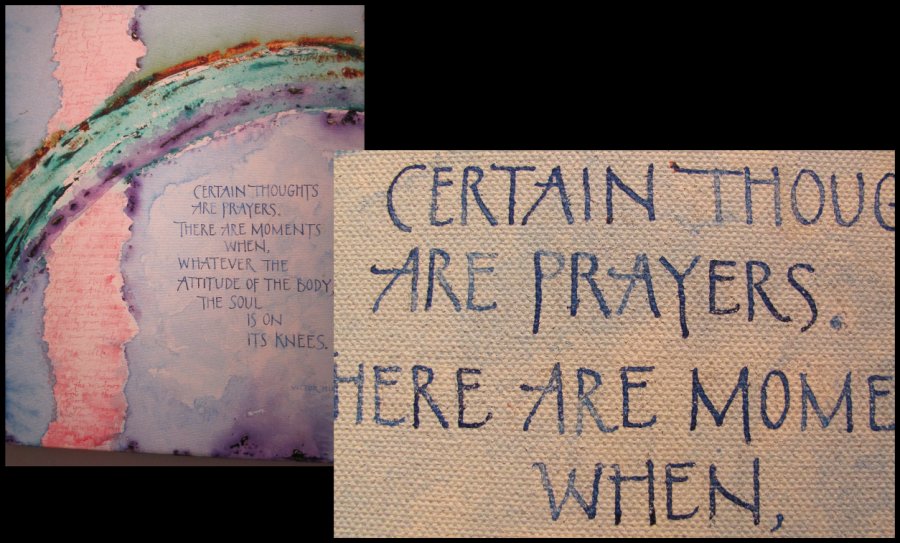 CERTAIN THOUGHTS
ARE PRAYERS.
THERE ARE MOMENTS
WHEN,
WHATEVER THE
ATTITUDE OF THE BODY,
THE SOUL
IS ON
ITS KNEES.
VICTOR
CERTAIN THOUG
ARE PRAYERS.
HERE ARE MOME
WHEN,